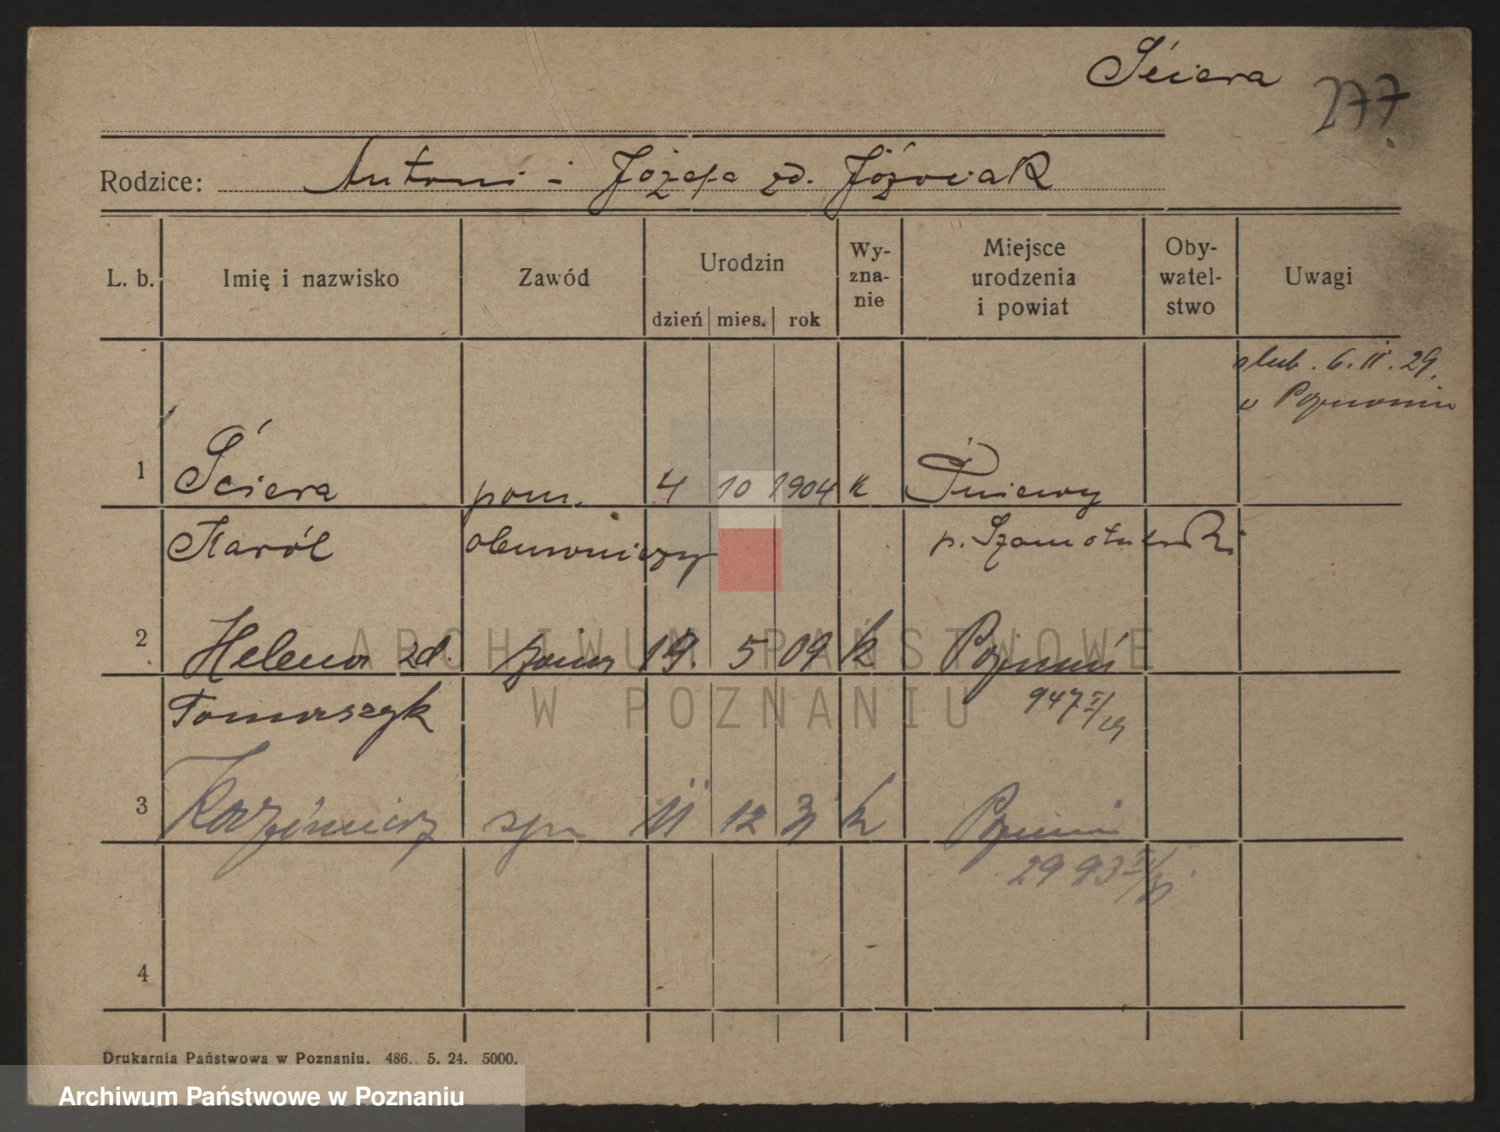 Ściera 277
Rodzice: Antoni i Józefa zd. Jóźwiak
L. b. Imię i nazwisko Zawód Urodzin dzień mies. rok Wy-zna-nie Miejsce urodzenia i powiat Oby-watel-stwo Uwagi
ślub. 6. II. 29.
w Poznaniu
1 Ściera pom. 4 10 1904 k Pniewy
Karól obuwniczy p. Szamotulski
2 Helena zd. żona 19. 5 09 k Poznań
Tomaszyk 947
3 Kazimierz syn 11 12 31 k Poznań
2993
4
Drukarnia Państwowa w Poznaniu. 486. 5. 24. 5000.
ARCHIWUM PAŃSTWOWE
W POZNANIU
Archiwum Państwowe w Poznaniu